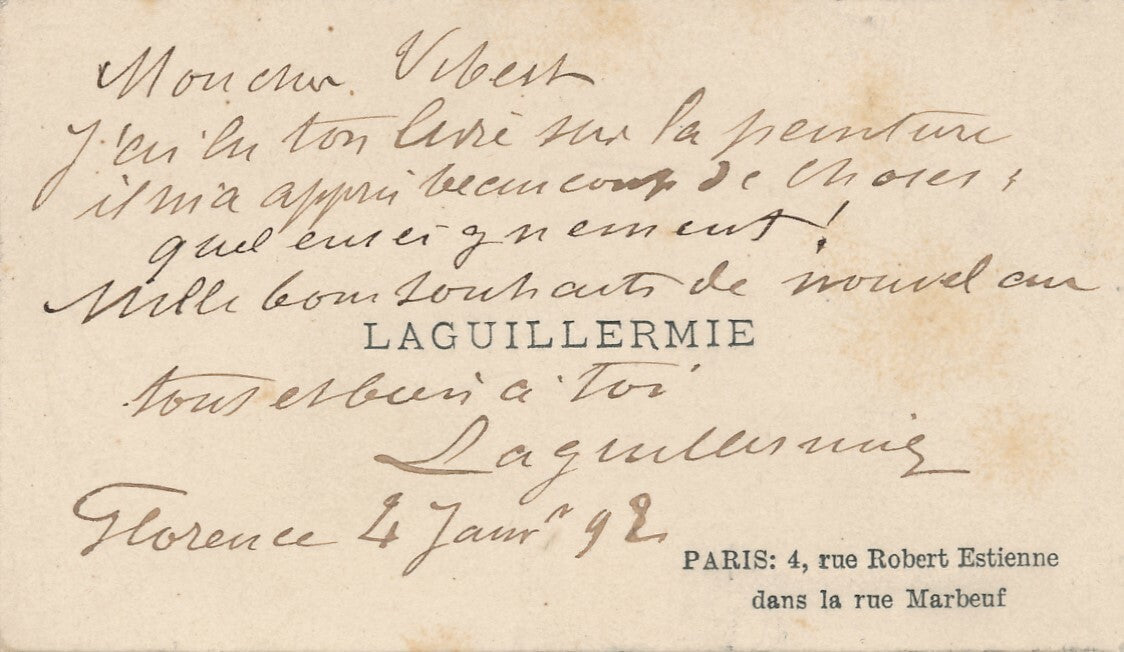 Mon cher Vibert
J'ai lu ton livre sur la peinture
il m'a appris beaucoup de choses ;
quel enseignement !
Mille bons souhaits de nouvel an
LAGUILLERMIE
tout et bien à toi
Laguillermie
Florence 4 Janvr 92
PARIS: 4, rue Robert Estienne
dans la rue Marbeuf